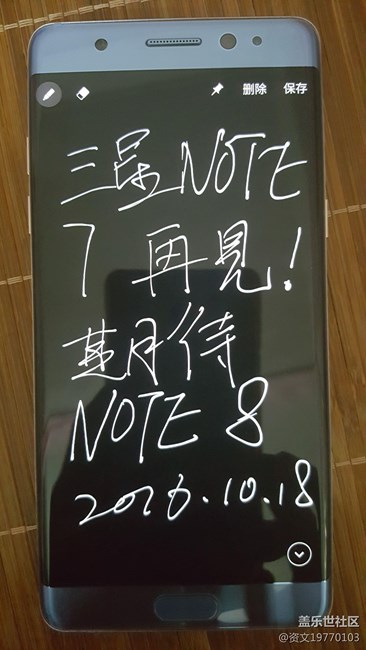 删除 保存
三星NOTE
7 再見!
期待
NOTE 8
2016.10.18
盖乐世社区
@资文19770103